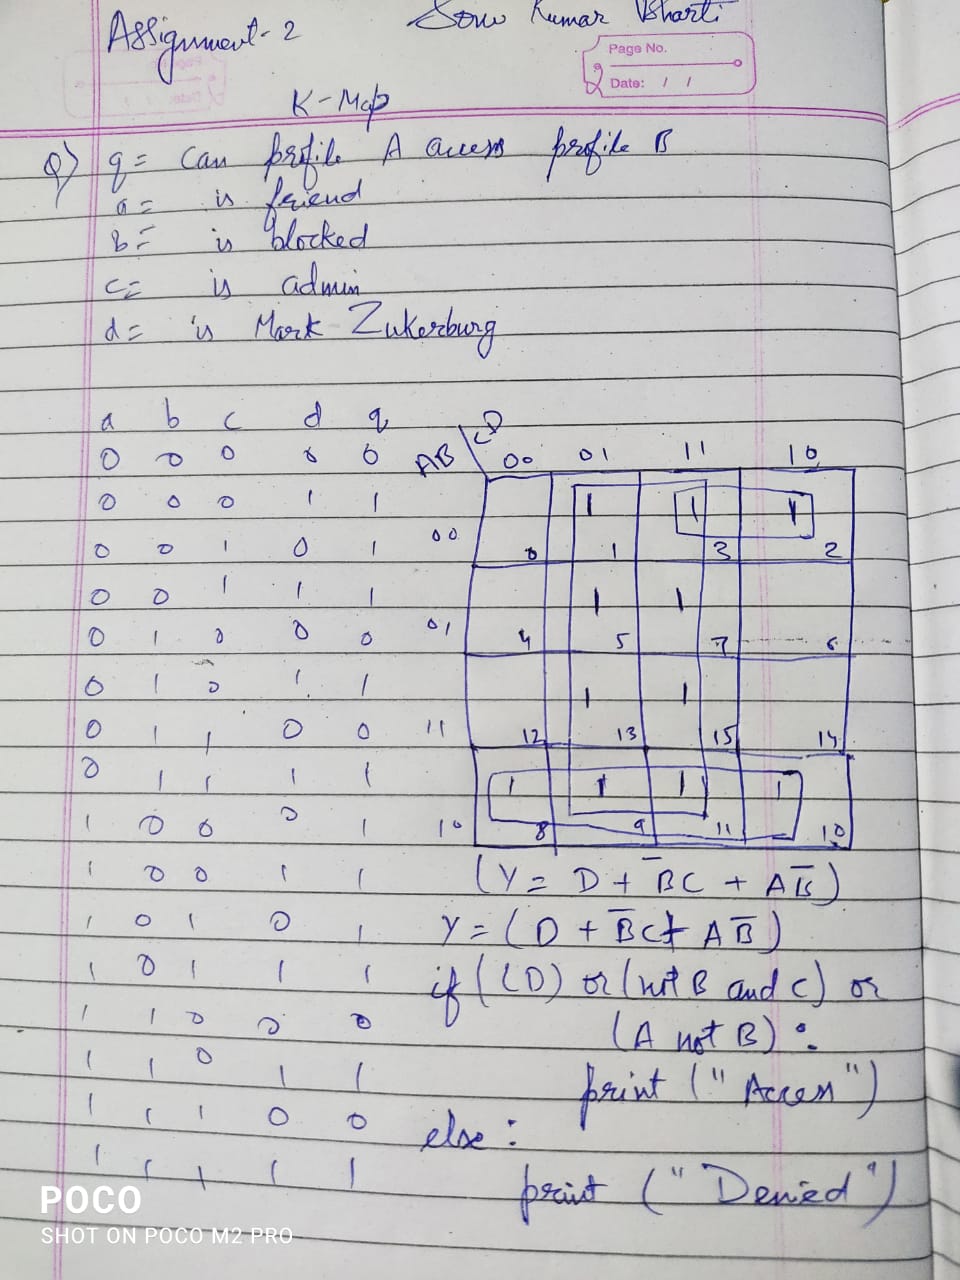 Assignment-2 Sonu Kumar Bharti
Page No.
2
Date: / /
K-Map
Q) q = Can profile A access profile B
a = is friend
b = is blocked
c = is admin
d = is Mark Zukerburg
a b c d q
0 0 0 0 0
0 0 0 1 1
0 0 1 0 1
0 0 1 1 1
0 1 0 0 0
0 1 0 1 1
0 1 1 0 0
0 1 1 1 1
1 0 0 0 1
1 0 0 1 1
1 0 1 0 1
1 0 1 1 1
1 1 0 0 0
1 1 0 1 1
1 1 1 0 0
1 1 1 1 1
AB CD 00 01 11 10
1 1 1
00 0 1 3 2
1 1
01 4 5 7 6
1 1
11 12 13 15 14
1 1 1 1
10 8 9 11 10
(Y = D + B̅C + AB̅)
Y = (D + B̅C + AB̅)
if ((D) or (not B and C) or
(A not B) :
print ("Access")
else :
print ("Denied")
POCO
SHOT ON POCO M2 PRO